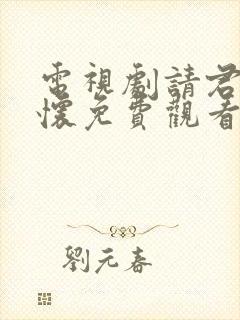 電視劇請君
懷免費觀看
劉元春